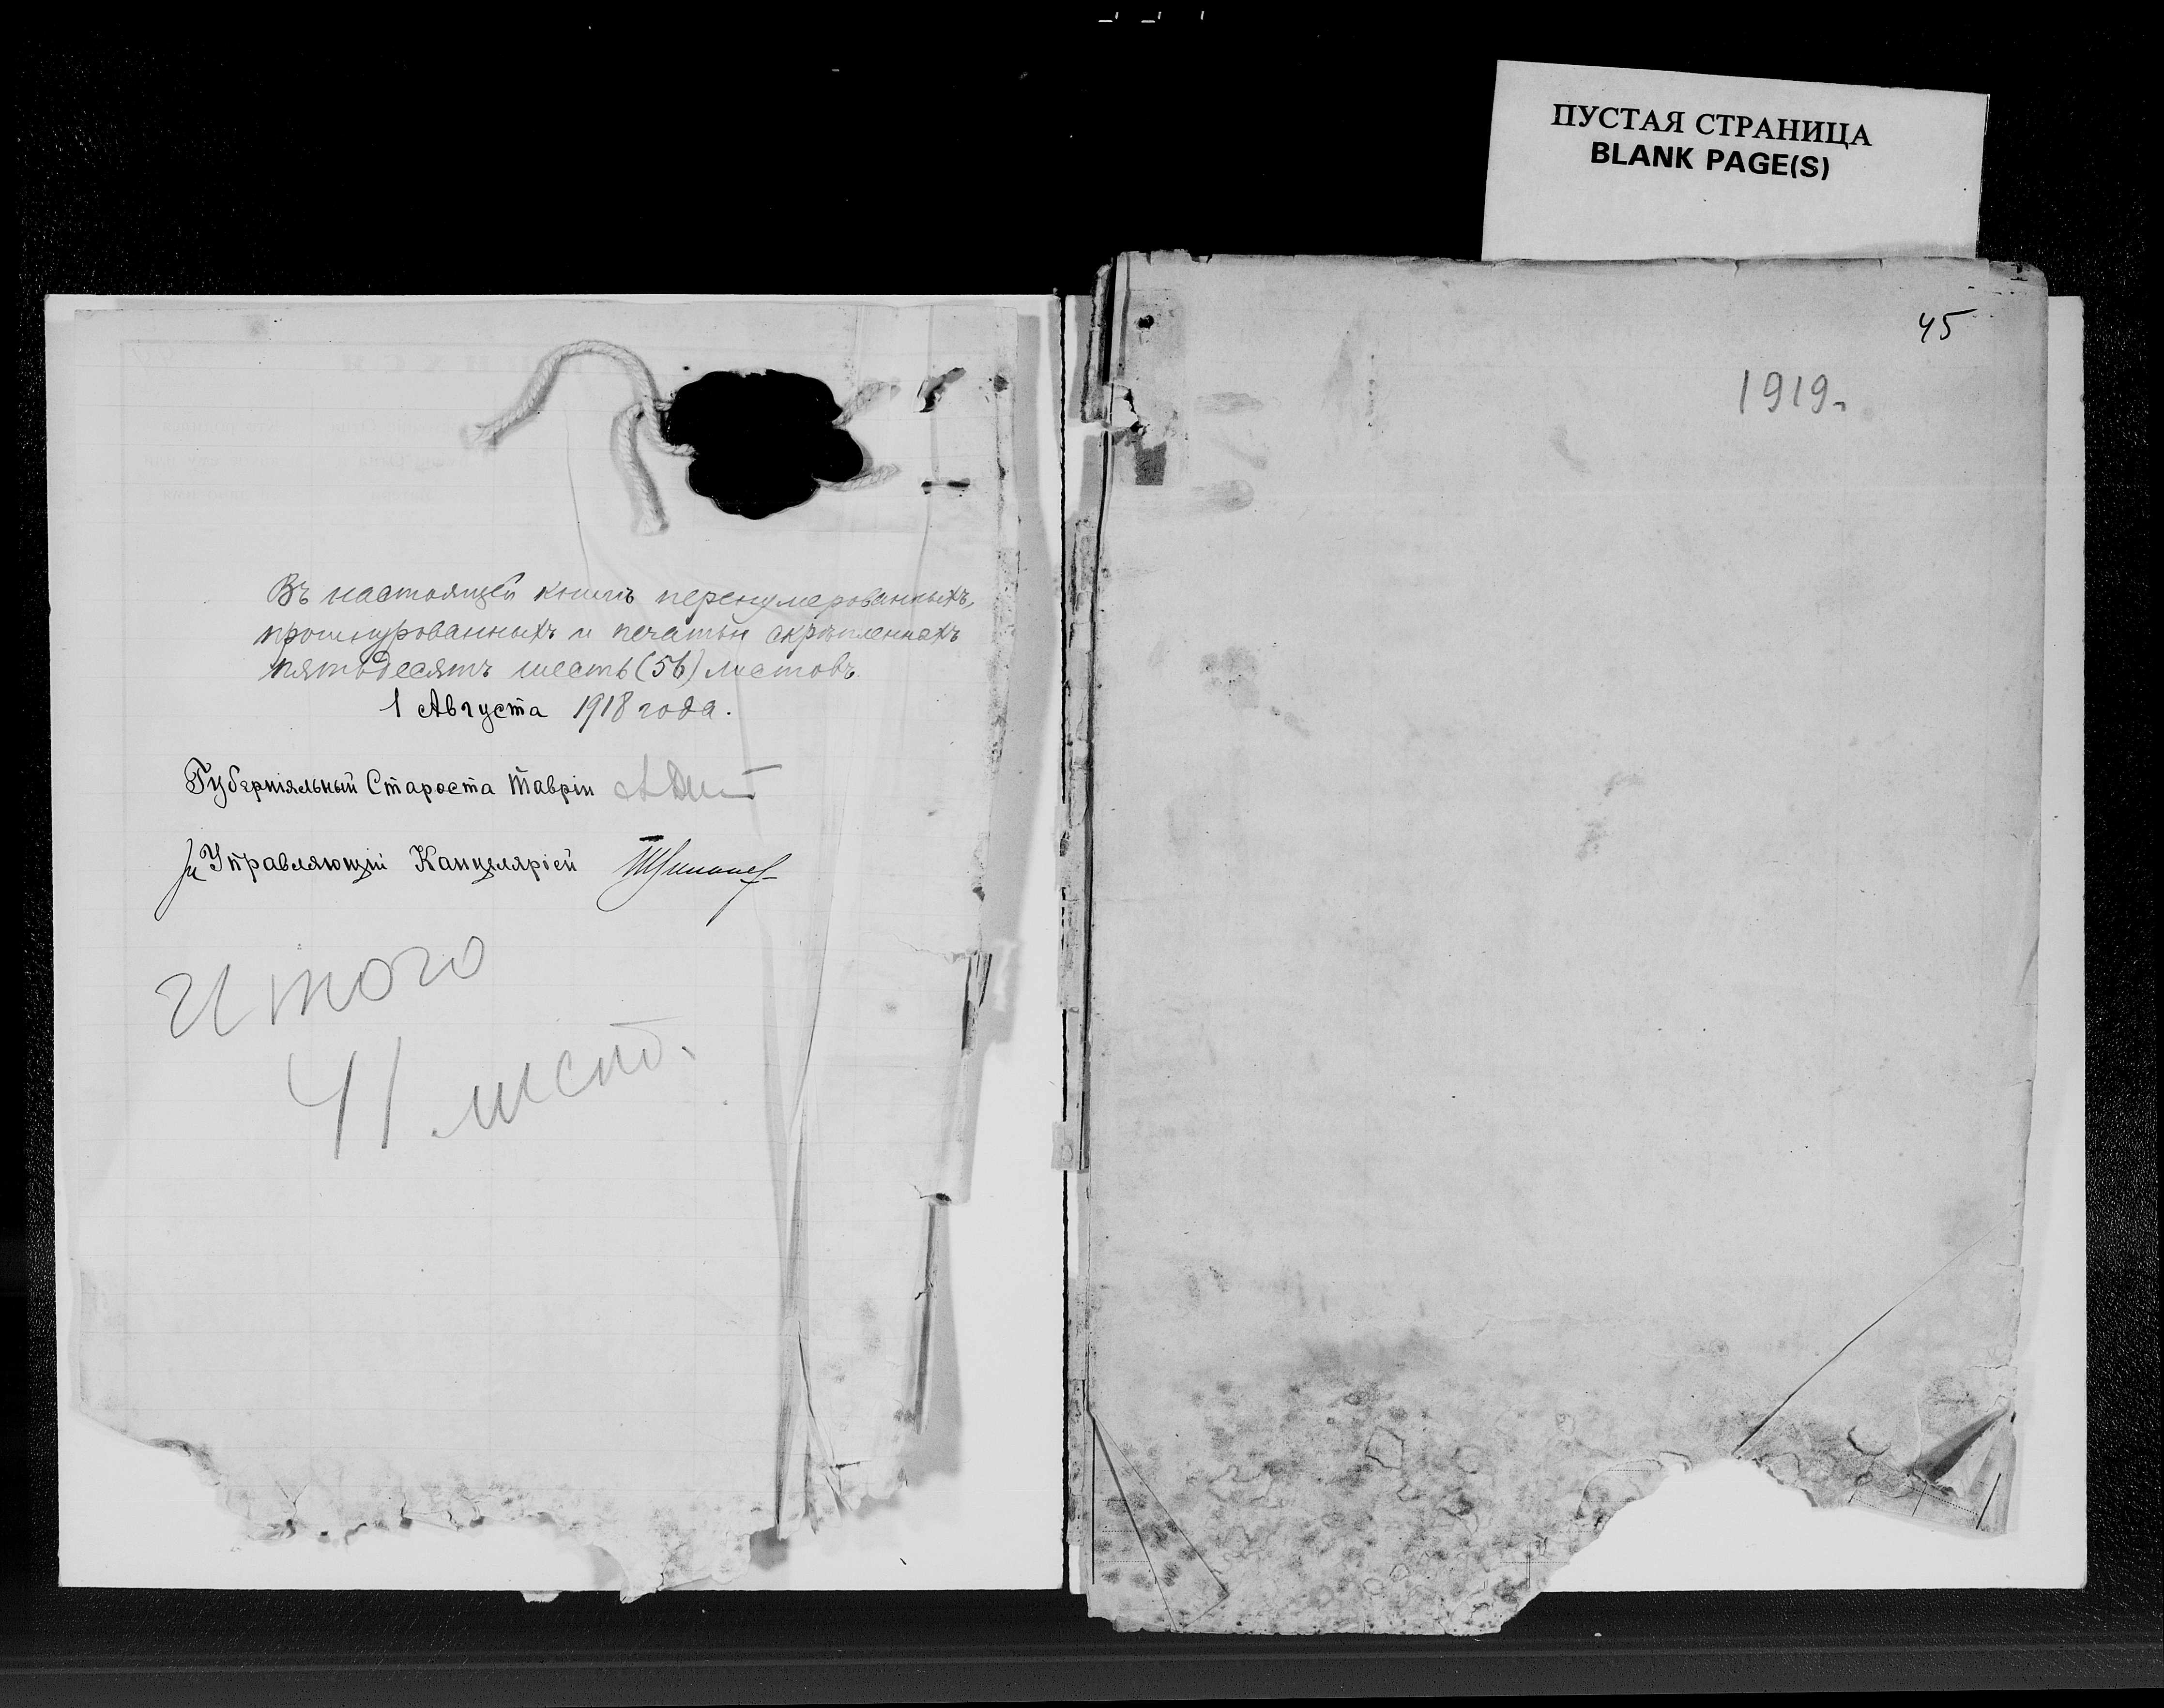 ПУСТАЯ СТРАНИЦА
BLANK PAGE(S)
Въ настоящей книгѣ перенумерованныхъ,
прошнурованныхъ и печатью скрѣпленныхъ
пятьдесятъ шесть (56) листовъ
1 Августа 1918 года.
Губерніяльный Староста Тавріи
Управляющій Канцеляріей
Итого
41 лист.
45
1919.